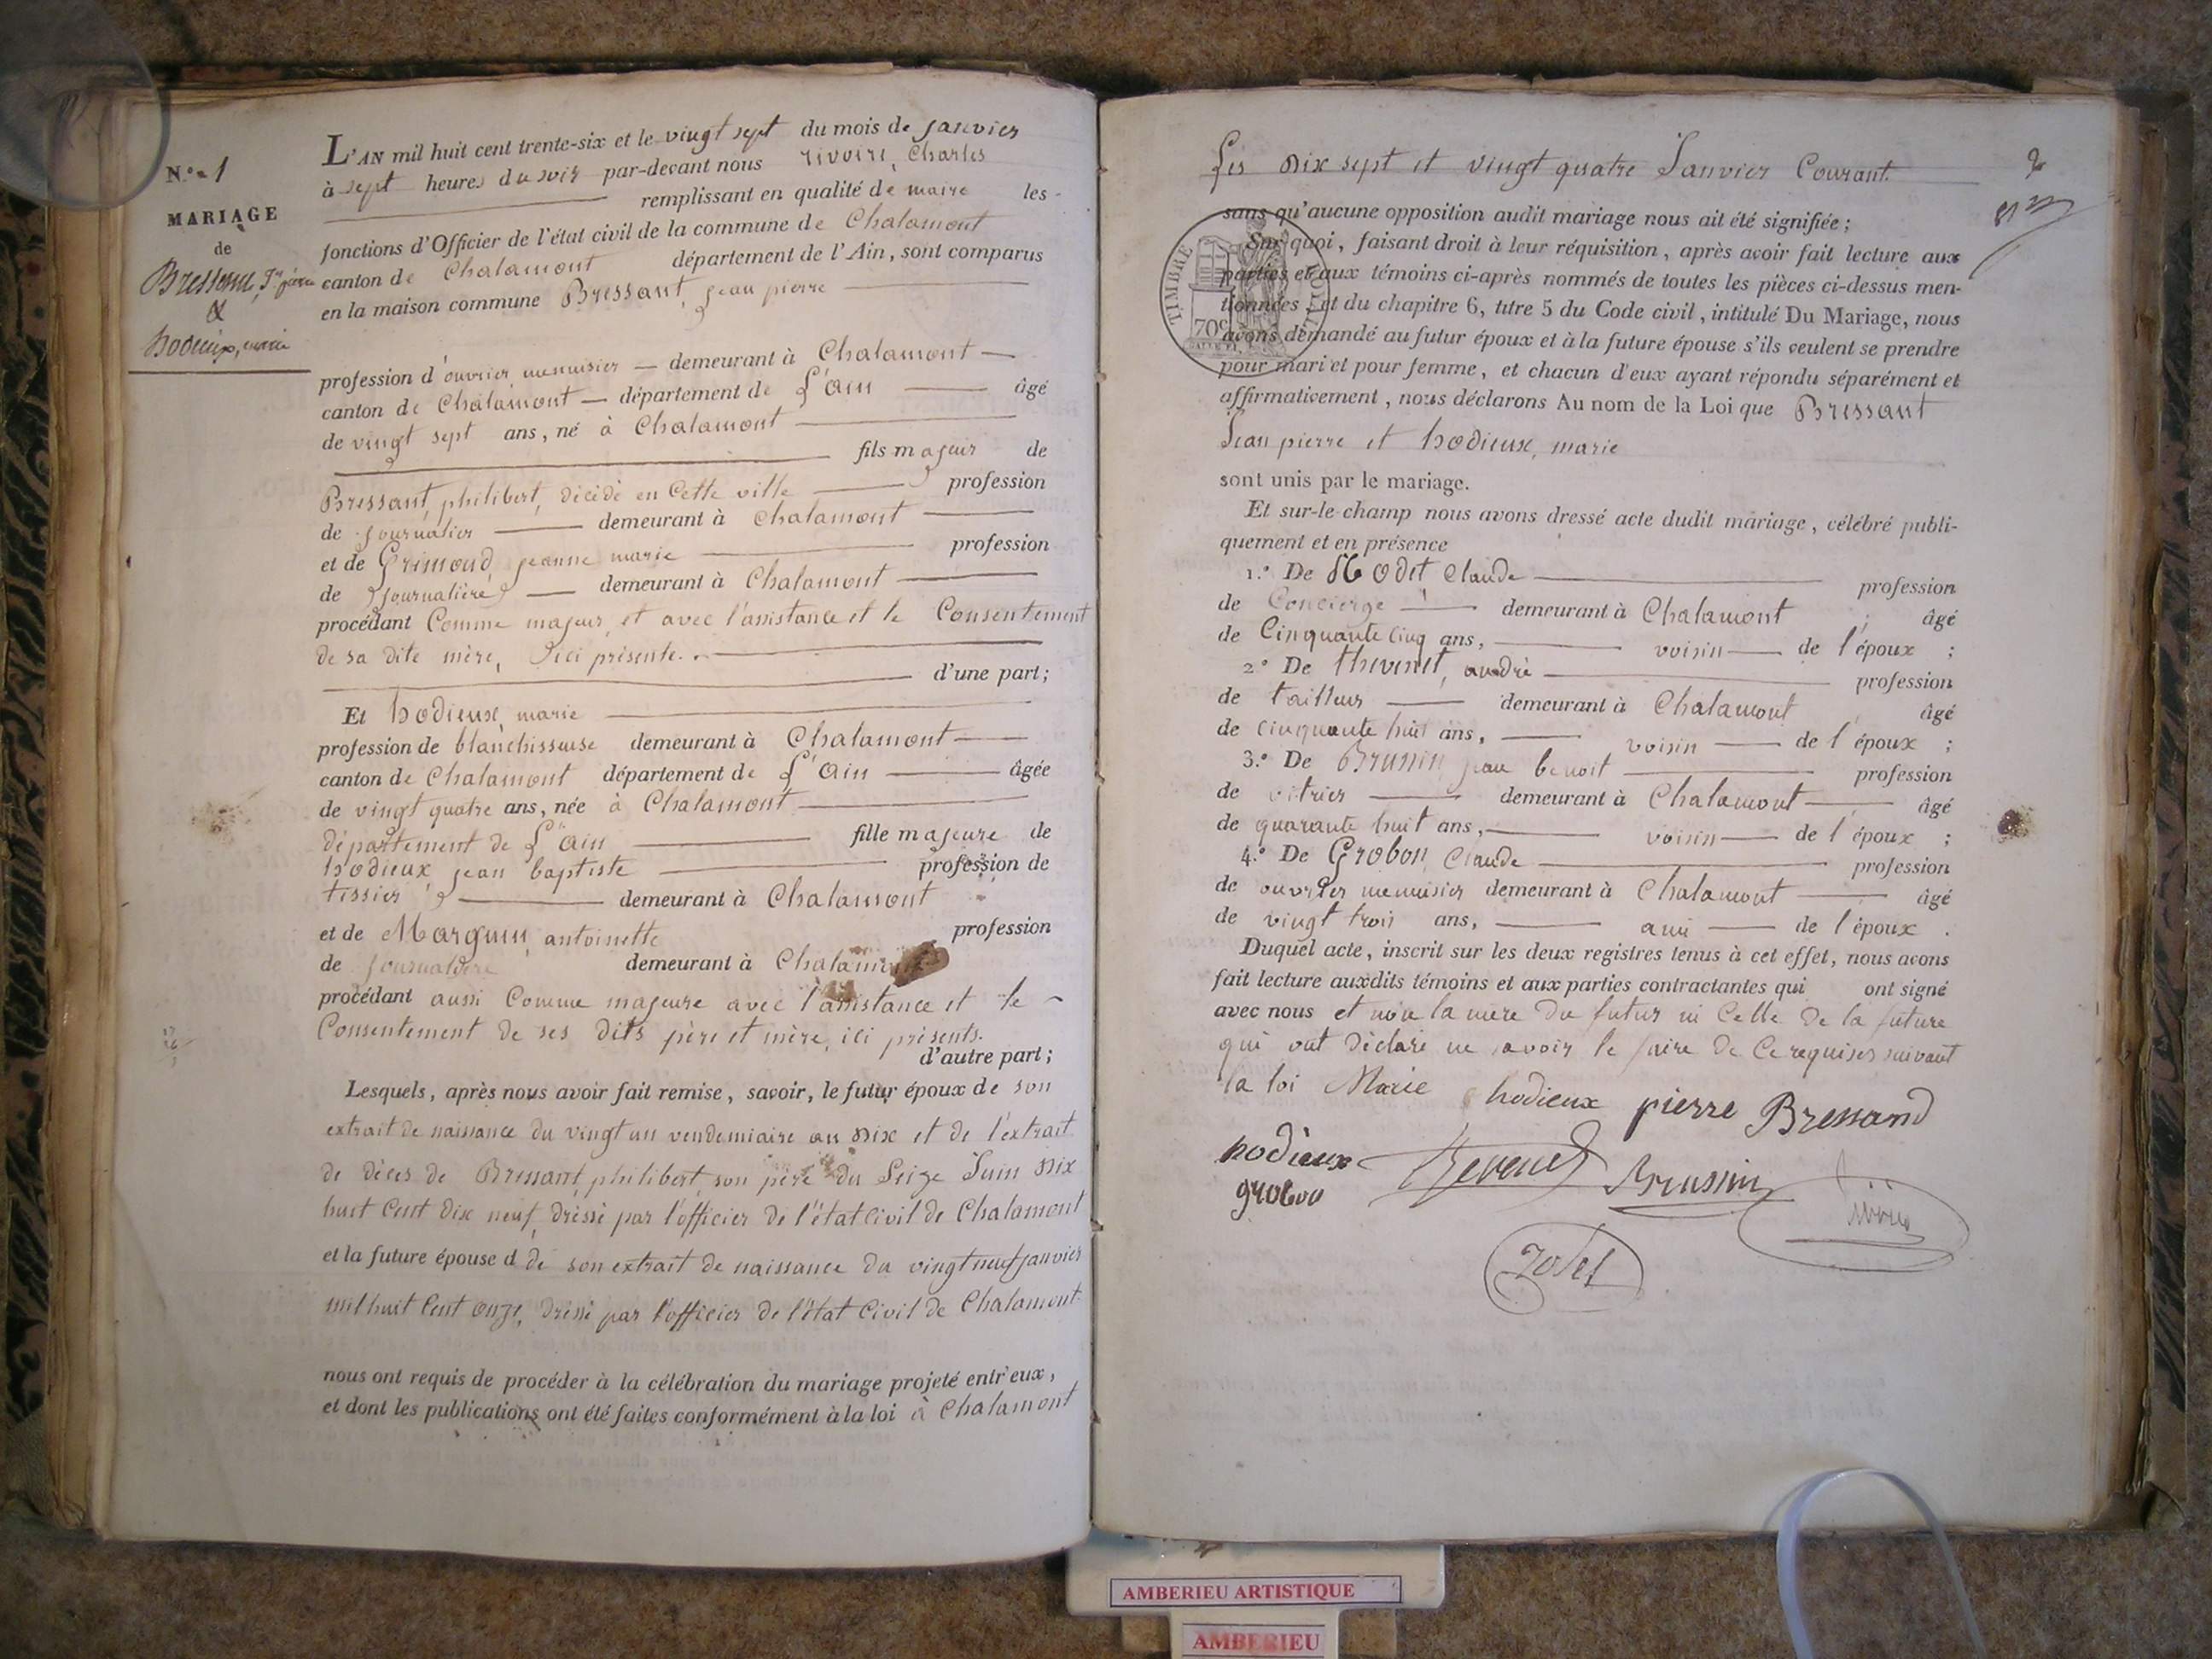 N.º 1
MARIAGE
de
&
hodieux, marie
L'AN mil huit cent trente-six et le vingt sept du mois de janvier
à sept heures du soir par-devant nous rivoire, Charles
remplissant en qualité de maire les
fonctions d'Officier de l'état civil de la commune de Chalamont
canton de Chalamont département de l'Ain, sont comparus
en la maison commune Bressant, jean pierre
profession d'ouvrier menuisier demeurant à Chalamont
canton de Chalamont département de L'ain âgé
de vingt sept ans, né à Chalamont
fils majeur de
Bressant, philibert, décédé en Cette ville profession
de journalier demeurant à Chalamont
et de Grimoud, jeanne marie profession
de journalière demeurant à Chalamont
procédant Comme majeur, et avec l'assistance et le Consentement
de sa dite mère, ici présente.
d'une part;
Et hodieux, marie
profession de blanchisseuse demeurant à Chalamont
canton de Chalamont département de L'ain âgée
de vingt quatre ans, née à Chalamont
département de L'ain fille majeure de
hodieux jean baptiste profession de
tissier demeurant à Chalamont
et de Marguin, antoinette profession
de journalière demeurant à Chalamont
procédant aussi Comme majeure avec l'assistance et le
Consentement de ses dits père et mère, ici présents.
d'autre part;
Lesquels, après nous avoir fait remise, savoir, le futur époux de son
extrait de naissance du vingt un vendemiaire an Dix et de l'extrait
de décès de Bressant, philibert, son père du Seize Juin Dix
huit Cent dix neuf, dressé par l'officier de l'état Civil de Chalamont
et la future épouse d de son extrait de naissance du vingt neuf janvier
mil huit Cent onze, dressé par l'officier de l'état Civil de Chalamont
nous ont requis de procéder à la célébration du mariage projeté entr'eux,
et dont les publications ont été faites conformément à la loi à Chalamont
Les Dix sept et vingt quatre Janvier Courant. 2
sans qu'aucune opposition audit mariage nous ait été signifiée;
TIMBRE ROYAL
70c
Sur quoi, faisant droit à leur réquisition, après avoir fait lecture aux
parties et aux témoins ci-après nommés de toutes les pièces ci-dessus men-
tionnées, et du chapitre 6, titre 5 du Code civil, intitulé Du Mariage, nous
avons demandé au futur époux et à la future épouse s'ils veulent se prendre
pour mari et pour femme, et chacun d'eux ayant répondu séparément et
affirmativement, nous déclarons Au nom de la Loi que Bressant
Jean pierre et hodieux, marie
sont unis par le mariage.
Et sur-le-champ nous avons dressé acte dudit mariage, célébré publi-
quement et en présence
1.º De Claude profession
de Concierge demeurant à Chalamont âgé
de Cinquante cinq ans, voisin de l'époux ;
2º De thevenet, andré profession
de tailleur demeurant à Chalamont âgé
de cinquante huit ans, voisin de l'époux ;
3.º De Brussin jean benoit profession
de vitrier demeurant à Chalamont âgé
de quarante huit ans, voisin de l'époux ;
4.º De Grobon, Claude profession
de ouvrier menuisier demeurant à Chalamont âgé
de vingt trois ans, ami de l'époux .
Duquel acte, inscrit sur les deux registres tenus à cet effet, nous avons
fait lecture auxdits témoins et aux parties contractantes qui ont signé
avec nous et non la mère du futur ni Celle de la future
qui ont déclaré ne savoir le faire de Ce requises suivant
la loi Marie hodieux pierre Bressand
hodieux Thevenet Brussin
grobon
AMBERIEU ARTISTIQUE
AMBERIEU